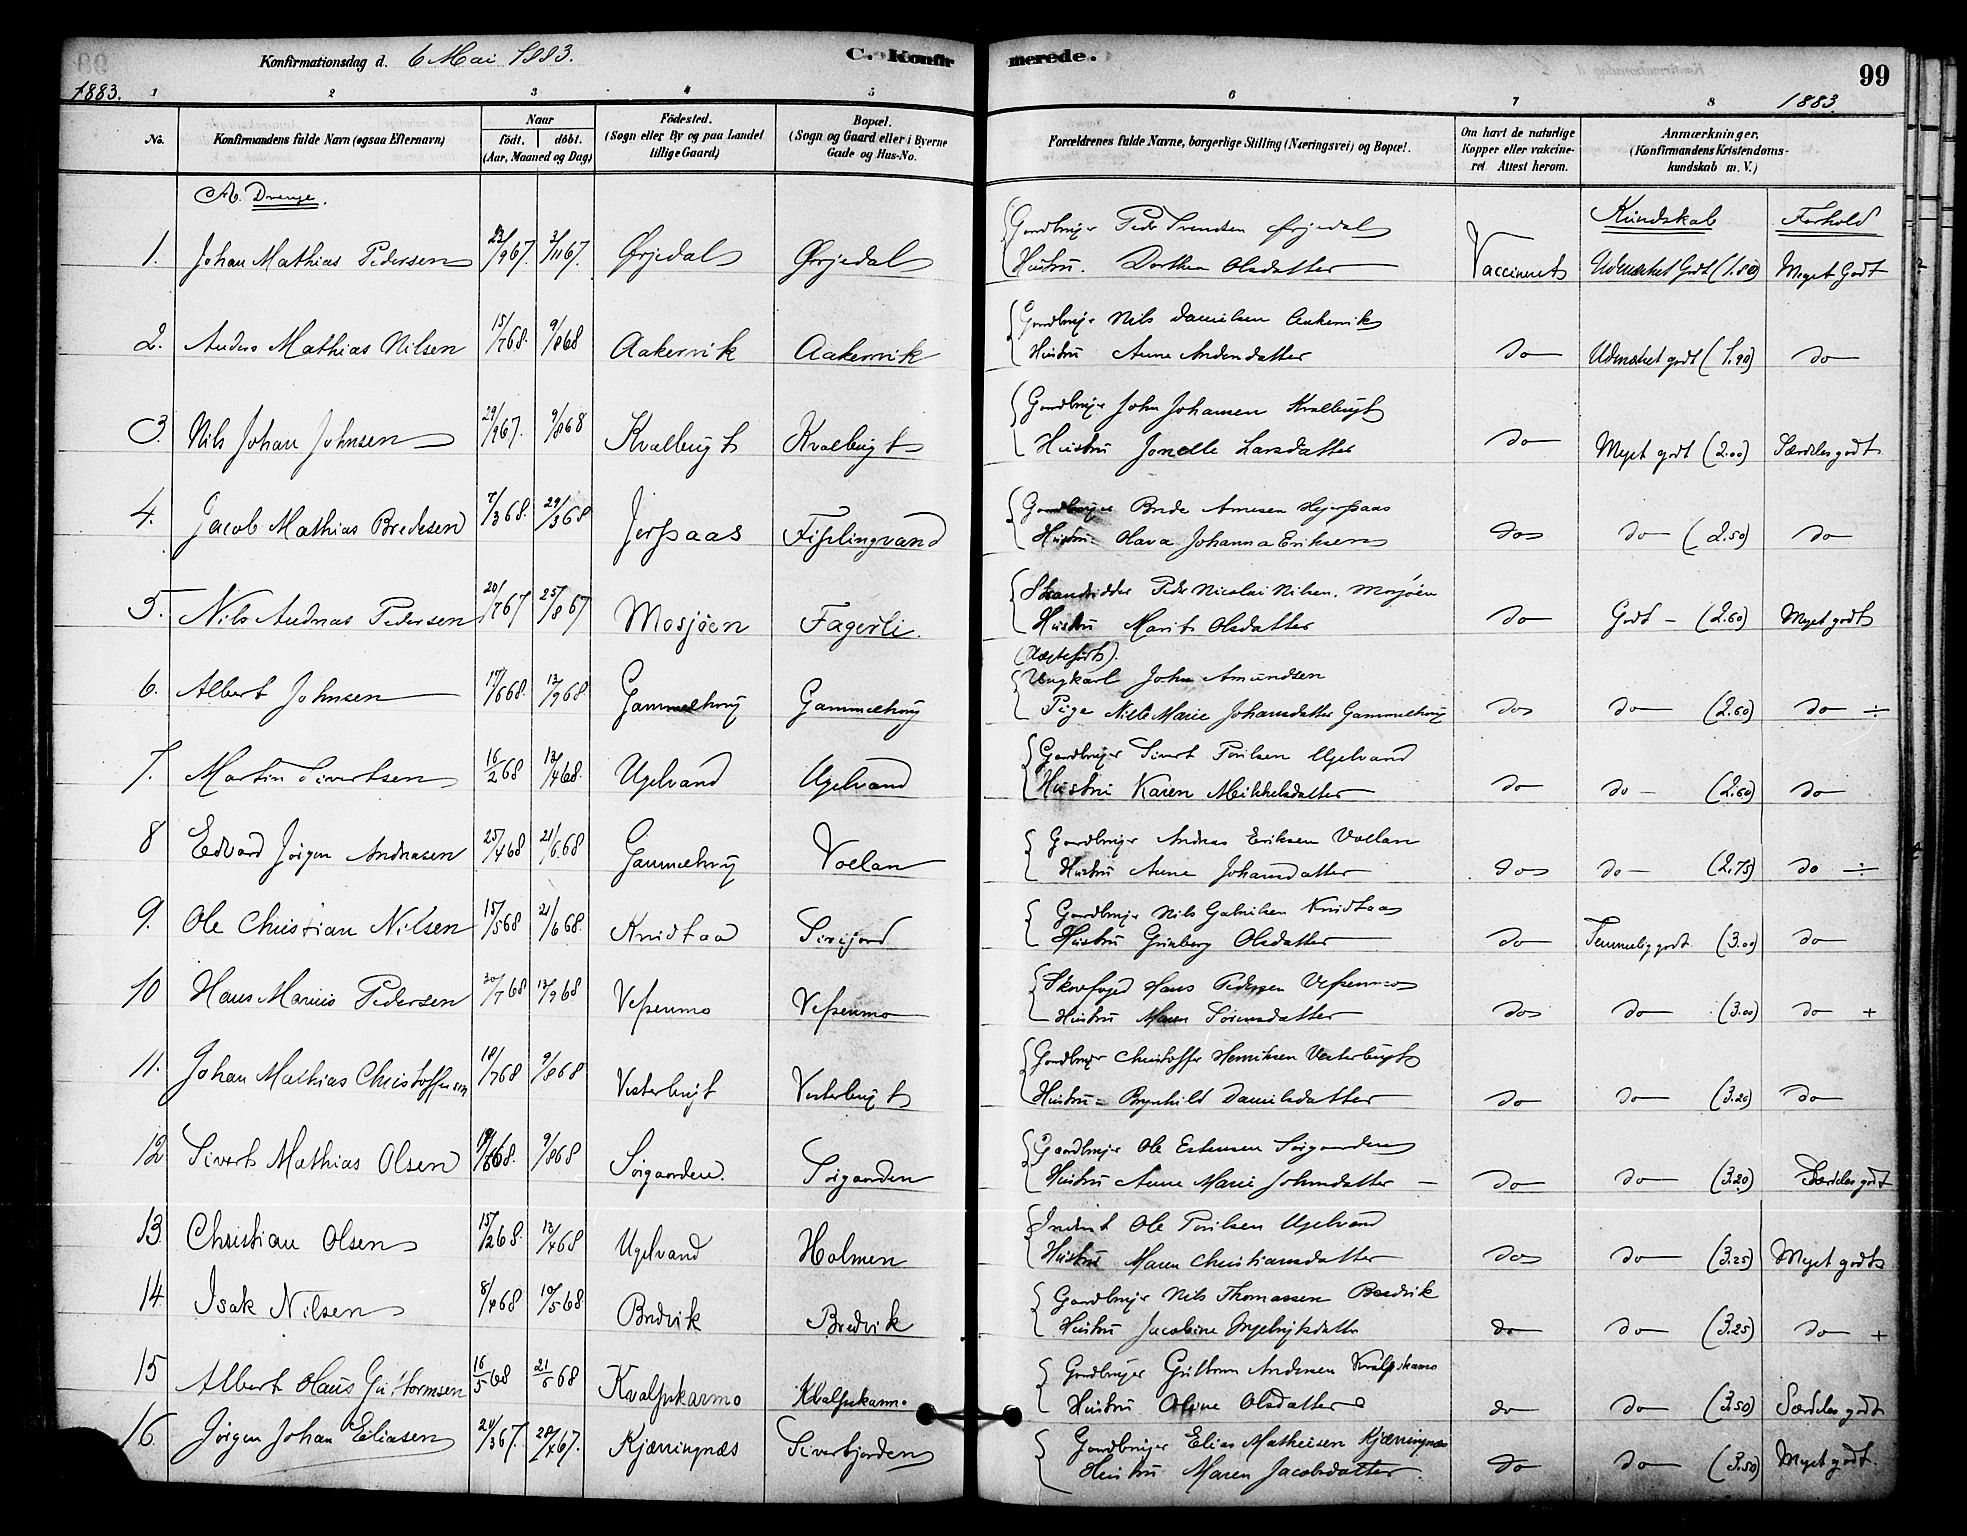 Konfirmationsdag d. 6 Mai 1883. C. Konfirmerede. 99
1883. 1 2 3 4 5 6 7 8 1883.
No. Konfirmandens fulde Navn (ogsaa Efternavn) Naar født. døbt. (Aar, Maaned og Dag) Fødested. (Sogn eller By og paa Landet tillige Gaard) Bopæl. (Sogn og Gaard eller i Byerne Gade og Hus-No. Forældrenes fulde Navne, borgerlige Stilling (Næringsvei) og Bopæl. Om havt de naturlige Kopper eller vakcineret. Attest herom. Anmærkninger. (Konfirmandens Kristendomskundskab m. V.)
A. Drenge. Kundskab Forhold
Gaardbruger Peder Svendsen Ørjedal
1. Johan Mathias Pedersen 23/9 67. 3/11 67. Ørjedal Ørjedal Hustru. Dorthea Olsdatter Vaccineret Udmærket Godt (1.80) Meget Godt
Gaardbruger Nils Danielsen Aakervik
2. Anders Mathias Nilsen 15/7 68. 9/8 68 Aakervik Aakervik Hustru Anne Andersdatter do Udmærket godt (1.90) do
Gaardbruger John Johansen Kvalbugt
3. Nils Johan Johnsen 29/9 67. 9/8 68 Kvalbugt Kvalbugt Hustru Jonelle Larsdatter do Meget godt (2.00) Særdeles godt
Gaardbruger Brede Arnesen Hjerpaas
4. Jacob Mathias Bredesen 7/3 68. 29/3 68 Jerpaas Fiplingvand Hustru Hava Johanna Eriksen do do (2.50) do
Peder Nicolai Nilsen. Mosjøen
5. Nils Andreas Pedersen 20/7 67 25/8 67 Mosjöen Fagerli. Hustru Marit Olsdatter do Godt - (2.60) Meget godt
(Uægtefødt).
Ungkarl John Amundsen
6. Albert Johnsen 17/6 68. 13/9 68 Gammelbrug Gammelbrug Pige Nille Marie Johansdatter Gammelbrug do do (2.60) do ÷
Gaardbruger Sivert Poulsen Ugelvand
7. Martin Sivertsen 16/2 68 13/4 68. Ugelvand Ugelvand Hustru Karen Mikkelsdatter do do - (2.60) do
Gaardbruger Andreas Eriksen Vollan
8 Edvard Jörgen Andreasen 25/4 68 21/6 68 Gammelbrug Vollan Hustru Anne Johansdatter do do - (2.75) do ÷
Gaardbruger Nils Gabrielsen Knidtaa
9. Ole Christian Nilsen 15/5 68 21/6 68. Knidtaa Sivefjord Hustru Gunberg Olsdatter do Temmelig godt (3.00) do
Skovfoged Hans Pedersen Vefsenmo
10 Hans Marius Pedersen 30/7 68 13/9 68 Vefsenmo Vefsenmo Hustru Maren Sörensdatter do do (3.00) do +
Gaardbruger Christoffer Henriksen Vesterbugt
11. Johan Mathias Christoffersen 18/7 68 9/8 68 Vesterbugt Vesterbugt Hustru = Brynhild Danielsdatter do do (3.20) do
Gaardbruger Ole Estensen Sörgaarden
12 Sivert Mathias Olsen 68. 9/8 68 Sörgaarden. Sörgaarden Hustru Anne Marie Johnsdatter do do (3.20) Særdeles godt
Inderst Ole Poulsen Ugelvand
13. Christian Olsen 15/2 68. 13/4 68 Ugelvand Holmen Hustru Maren Christiansdatter do do (3.25) Meget godt
Gaardbruger Nils Thomassen Bredvik
14. Isak Nilsen 8/4 68 10/5 68 Bredvik Bredvik Hustru Jacobine Ingebrigtsdatter do do (3.25) do +
Gaardbruger Guttorm Andersen Kvalpskarmo
15 Albert Olaus Guttormsen 16/5 68 21/6 68 Kvalpskarmo Kvalpskarmo Hustru Oline Olsdatter do do (3.50) Særdeles godt
Gaardbruger Elias Matheisen Kjæringnæs
16. Jörgen Johan Eliasen 24/3 67. 28/4 67. Kjæringnæs Siverfjorden Hustru Maren Jacobsdatter. do do (3.50) Meget godt.